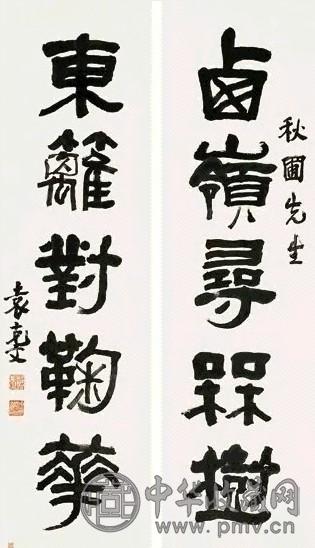 秋圃先生
卥嶺尋槑樹
東籬對鞠華
袁克文
中华收藏网
www.pmv.cn